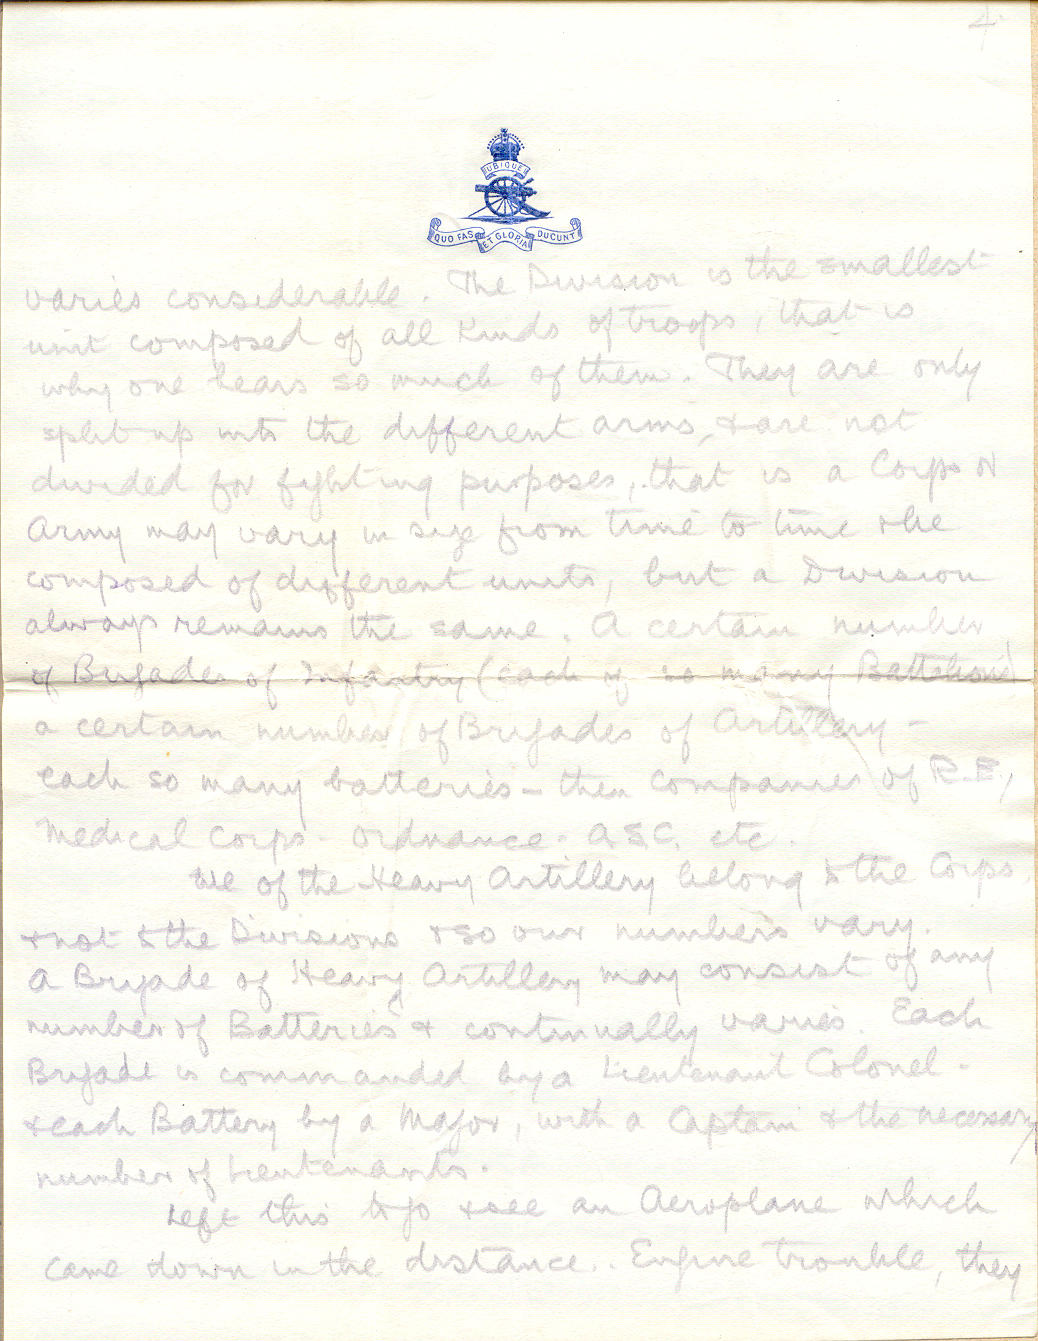 4.
UBIQUE
QUO FAS ET GLORIA DUCUNT
varies considerable. The Division is the smallest
unit composed of all kinds of troops, that is
why one hears so much of them. They are only
split up into the different arms, & are not
divided for fighting purposes, that is a Corps or
Army may vary in size from time to time & be
composed of different units, but a Division
always remains the same. A certain number
of Brigades of Infantry (each of so many Battalions)
a certain number of Brigades of Artillery -
each so many batteries - then Companies of R.E,
Medical Corps - Ordnance - A.S.C. etc.
We of the Heavy Artillery belong to the Corps,
& not to the Divisions & so our numbers vary.
A Brigade of Heavy Artillery may consist of any
number of Batteries & continually varies. Each
Brigade is commanded by a Lieutenant Colonel -
& each Battery by a Major, with a Captain & the necessary
number of Lieutenants.
Left this to go & see an Aeroplane which
came down in the distance.. Engine trouble, they